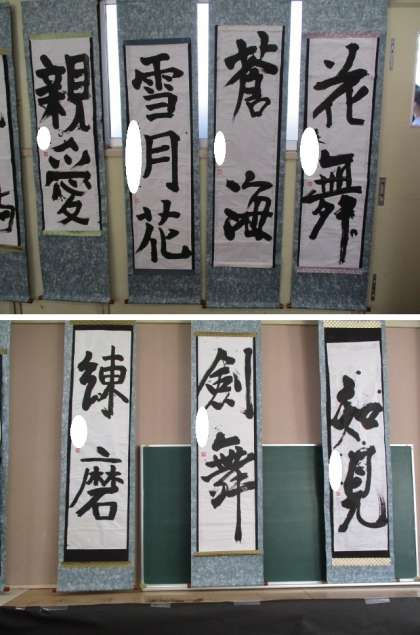 親愛
雪月花
蒼海
花舞
練磨
剣舞
知見